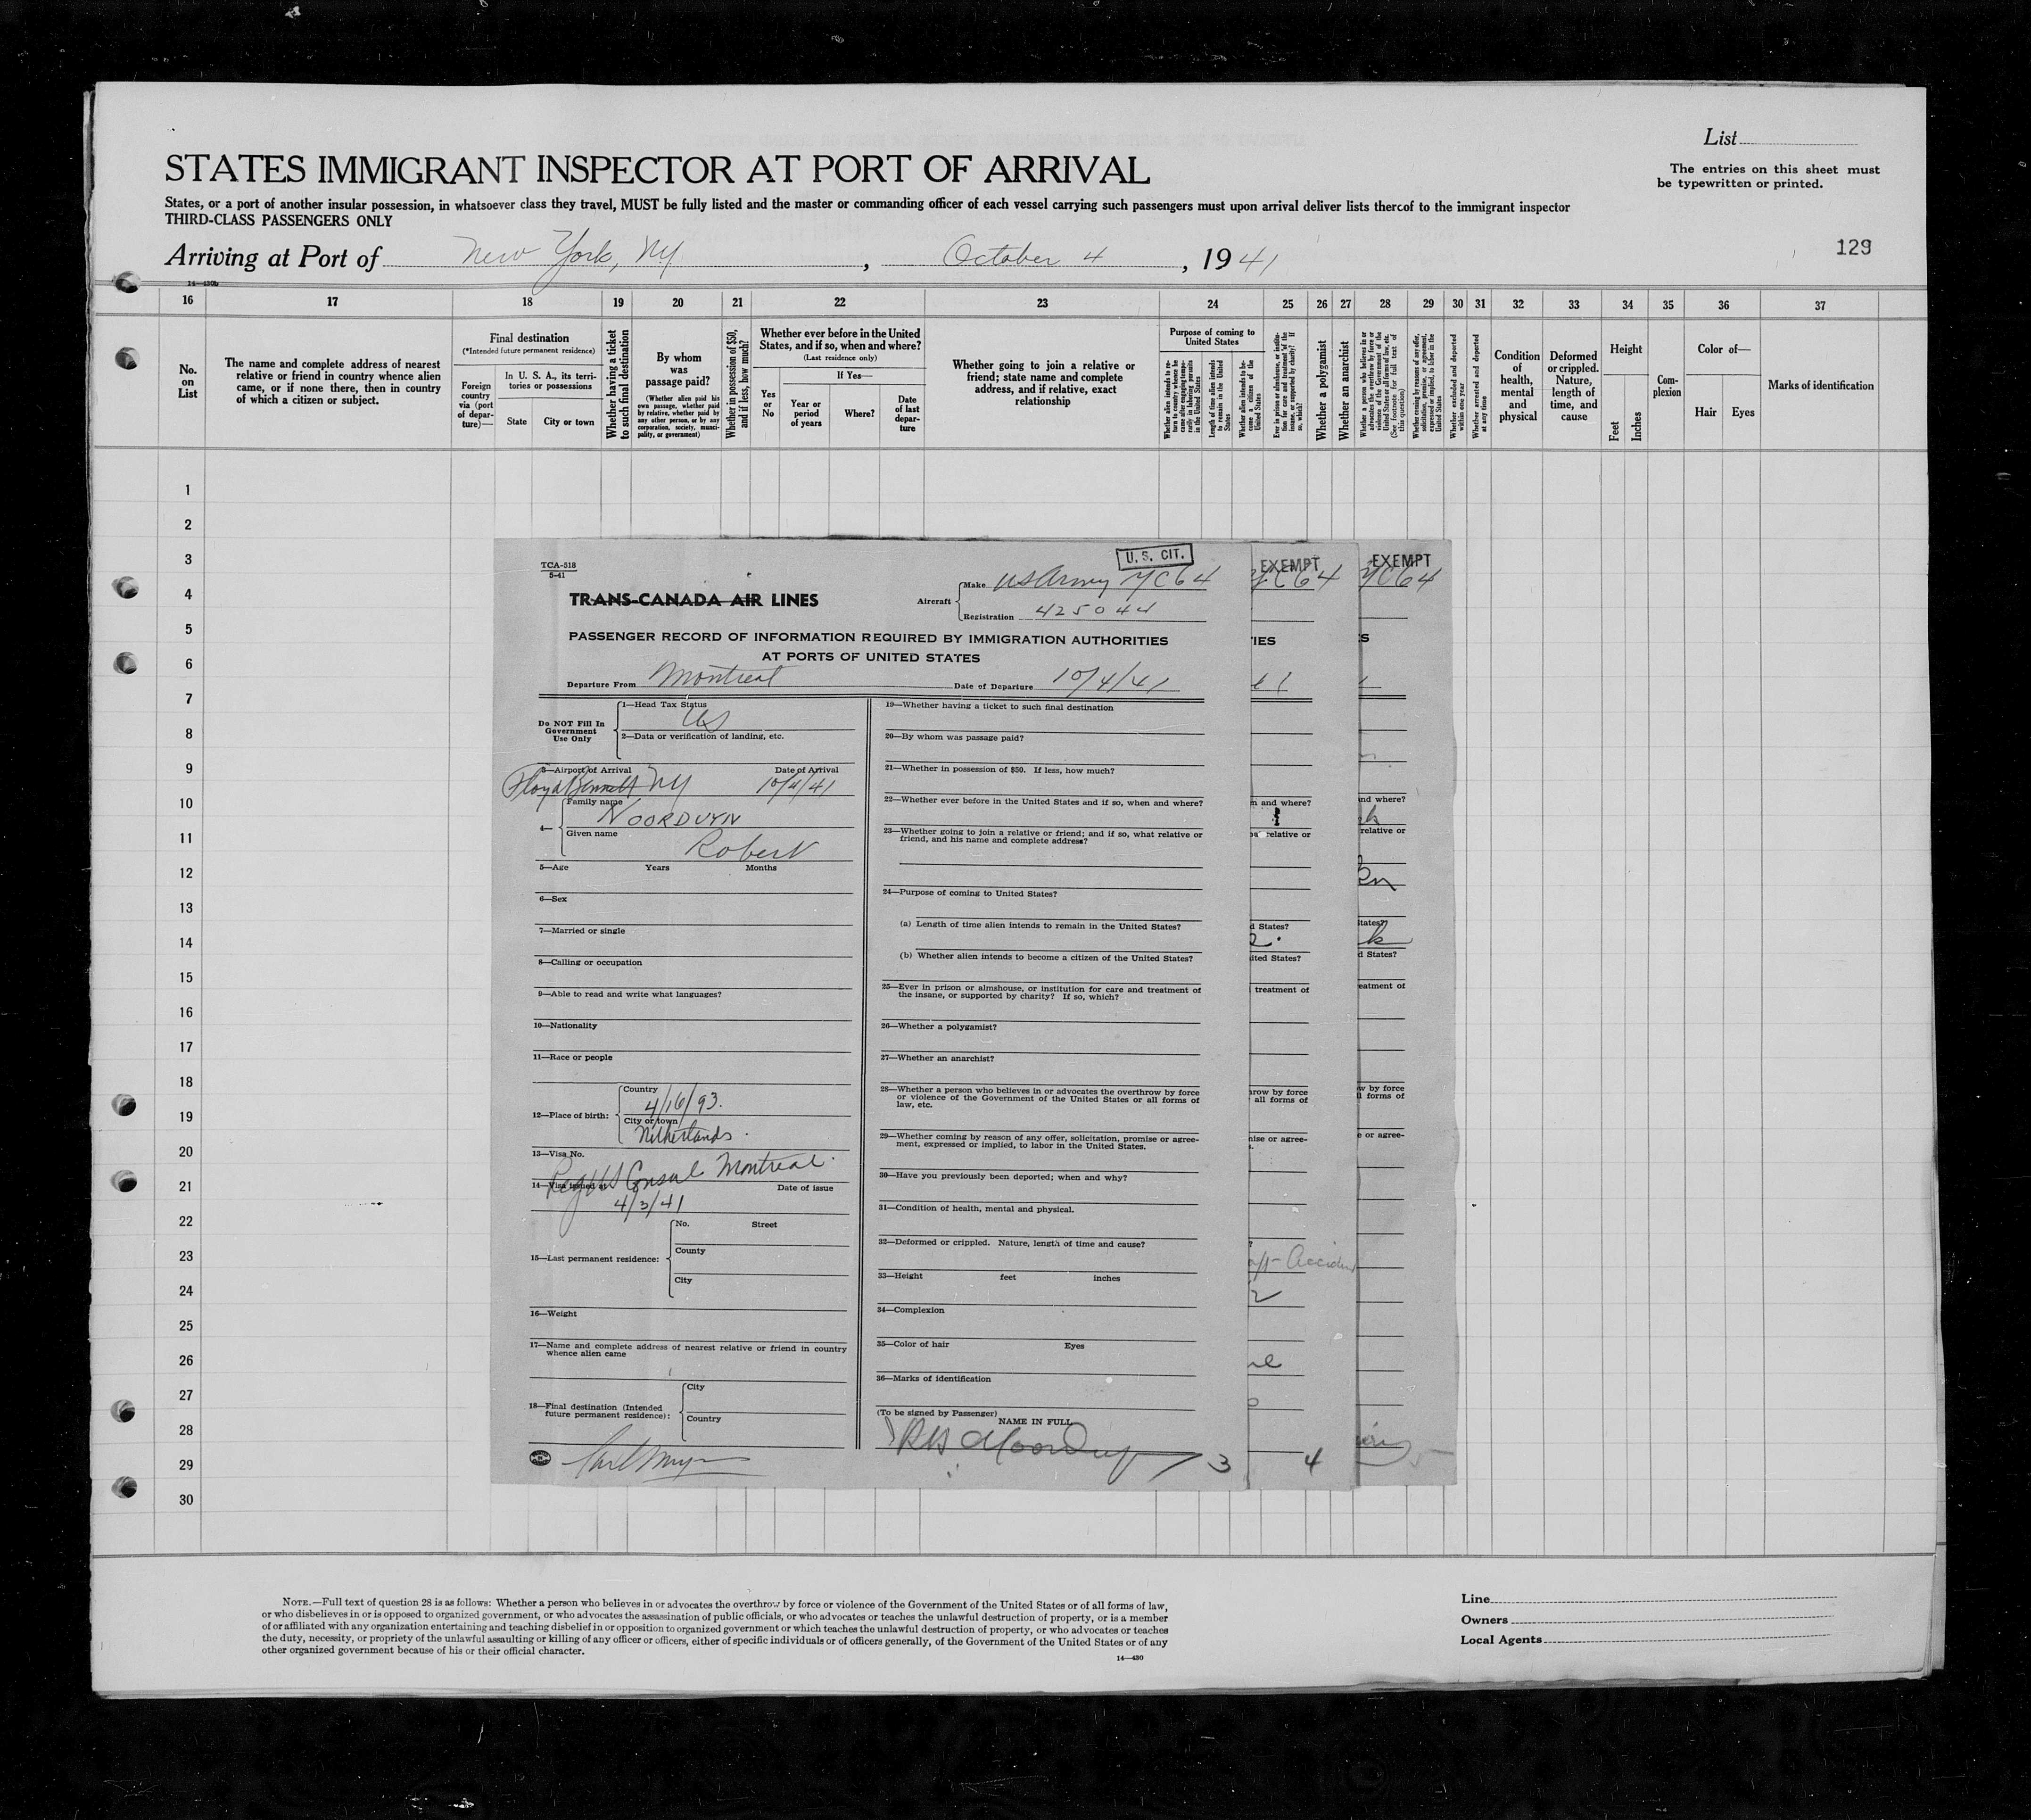 List
STATES IMMIGRANT INSPECTOR AT PORT OF ARRIVAL
The entries on this sheet must
be typewritten or printed.
States, or a port of another insular possession, in whatsoever class they travel, MUST be fully listed and the master or commanding officer of each vessel carrying such passengers must upon arrival deliver lists thereof to the immigrant inspector
THIRD-CLASS PASSENGERS ONLY
Arriving at Port of New York, NY, October 4, 1941
129
14—430b
16 17 18 19 20 21 22 23 24 25 26 27 28 29 30 31 32 33 34 35 36 37
No.
on
List
The name and complete address of nearest
relative or friend in country whence alien
came, or if none there, then in country
of which a citizen or subject.
Final destination
(*Intended future permanent residence)
Foreign
country
via (port
of depar-
ture)—
In U. S. A., its terri-
tories or possessions
State
City or town
Whether having a ticket
to such final destination
By whom
was
passage paid?
(Whether alien paid his
own passage, whether paid
by relative, whether paid by
any other person, or by any
corporation, society, munici-
pality, or government)
Whether in possession of $50,
and if less, how much?
Whether ever before in the United
States, and if so, when and where?
(Last residence only)
If Yes—
Yes
or
No
Year or
period
of years
Where?
Date
of last
depar-
ture
Whether going to join a relative or
friend; state name and complete
address, and if relative, exact
relationship
Purpose of coming to
United States
Whether alien intends to re-
turn to country whence he
came after engaging tempo-
rarily in laboring pursuits
in the United States
Length of time alien intends
to remain in the United
States
Whether alien intends to be-
come a citizen of the
United States
Ever in prison or almshouse, or institu-
tion for care and treatment of the
insane, or supported by charity? If
so, which?
Whether a polygamist
Whether an anarchist
Whether a person who believes in or
advocates the overthrow by force or
violence of the Government of the
United States or all forms of law, etc.
(See footnote for full text of
this question)
Whether coming by reasons of any offer,
solicitation, promise, or agreement,
expressed or implied, to labor in the
United States
Whether excluded and deported
within one year
Whether arrested and deported
at any time
Condition
of
health,
mental
and
physical
Deformed
or crippled.
Nature,
length of
time, and
cause
Height
Feet
Inches
Com-
plexion
Color of—
Hair
Eyes
Marks of identification
1
2
3
4
5
6
7
8
9
10
11
12
13
14
15
16
17
18
19
20
21
22
23
24
25
26
27
28
29
30
TCA-518
5-41
U. S. CIT.
TRANS-CANADA AIR LINES
Aircraft
Make US Army YC64
Registration 425044
PASSENGER RECORD OF INFORMATION REQUIRED BY IMMIGRATION AUTHORITIES
AT PORTS OF UNITED STATES
Departure From Montreal Date of Departure 10/4/41
Do NOT Fill In
Government
Use Only
1—Head Tax Status
US
2—Data or verification of landing, etc.
3—Airport of Arrival Date of Arrival
Floyd Bennett NY 10/4/41
4—
Family name
NOORDUYN
Given name
Robert
5—Age Years Months
6—Sex
7—Married or single
8—Calling or occupation
9—Able to read and write what languages?
10—Nationality
11—Race or people
12—Place of birth:
Country
4/16/93.
City or town
Netherlands.
13—Visa No.
Reg US Consul Montreal
14—Visa issued at Date of issue
4/3/41
15—Last permanent residence:
No. Street
County
City
16—Weight
17—Name and complete address of nearest relative or friend in country
whence alien came
18—Final destination (Intended
future permanent residence):
City
Country
19—Whether having a ticket to such final destination
20—By whom was passage paid?
21—Whether in possession of $50. If less, how much?
22—Whether ever before in the United States and if so, when and where?
23—Whether going to join a relative or friend; and if so, what relative or
friend, and his name and complete address?
24—Purpose of coming to United States?
(a) Length of time alien intends to remain in the United States?
(b) Whether alien intends to become a citizen of the United States?
25—Ever in prison or almshouse, or institution for care and treatment of
the insane, or supported by charity? If so, which?
26—Whether a polygamist?
27—Whether an anarchist?
28—Whether a person who believes in or advocates the overthrow by force
or violence of the Government of the United States or all forms of
law, etc.
29—Whether coming by reason of any offer, solicitation, promise or agree-
ment, expressed or implied, to labor in the United States.
30—Have you previously been deported; when and why?
31—Condition of health, mental and physical.
32—Deformed or crippled. Nature, length of time and cause?
33—Height feet inches
34—Complexion
35—Color of hair Eyes
36—Marks of identification
(To be signed by Passenger)
NAME IN FULL
3
EXEMPT
YC64
IES
n and where?
relative or
d States?
ited States?
treatment of
hrow by force
all forms of
nise or agree-
Accident
4
EXEMPT
YC64
S
nd where?
relative or
tates?
d States?
eatment of
w by force
l forms of
e or agree-
NOTE.—Full text of question 28 is as follows: Whether a person who believes in or advocates the overthrow by force or violence of the Government of the United States or of all forms of law,
or who disbelieves in or is opposed to organized government, or who advocates the assassination of public officials, or who advocates or teaches the unlawful destruction of property, or is a member
of or affiliated with any organization entertaining and teaching disbelief in or opposition to organized government or which teaches the unlawful destruction of property, or who advocates or teaches
the duty, necessity, or propriety of the unlawful assaulting or killing of any officer or officers, either of specific individuals or of officers generally, of the Government of the United States or of any
other organized government because of his or their official character.
14—430
Line
Owners
Local Agents